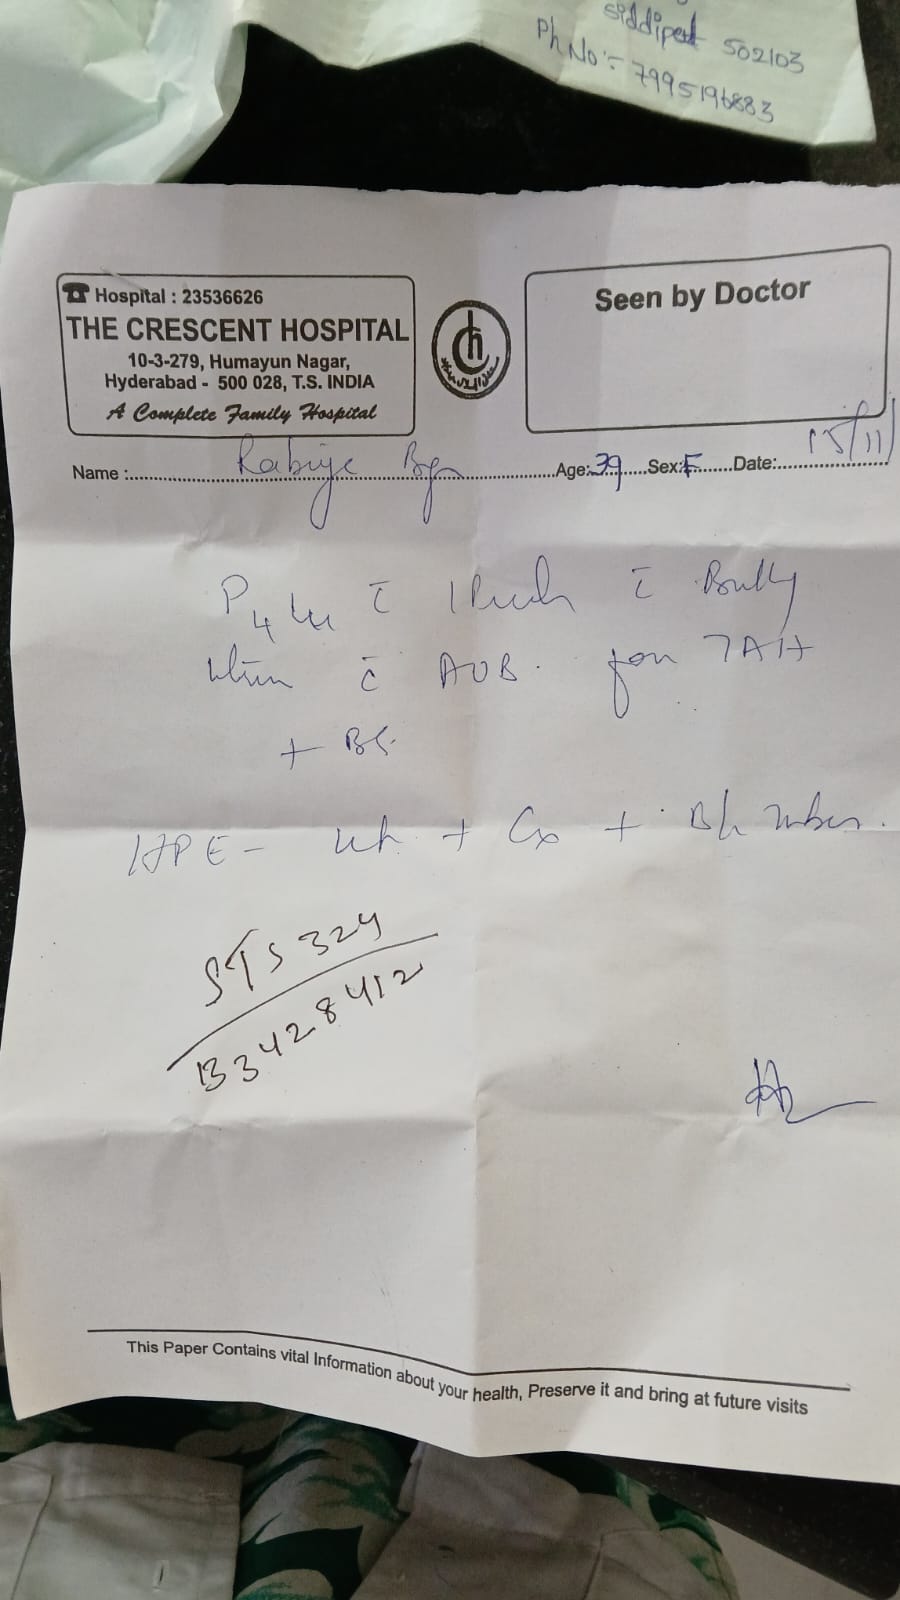 siddipet 502103
Ph No:- 7995196883
Hospital : 23536626
THE CRESCENT HOSPITAL
10-3-279, Humayun Nagar,
Hyderabad - 500 028, T.S. INDIA
A Complete Family Hospital
Seen by Doctor
Name : Age: 39 Sex: F Date: 15/11
P4 c̄ c̄ Bulky
c̄ AUB. for TAH
+ BS.
HPE - Ut + Cx + B/L tubes.
STS 324
33428412
This Paper Contains vital Information about your health, Preserve it and bring at future visits